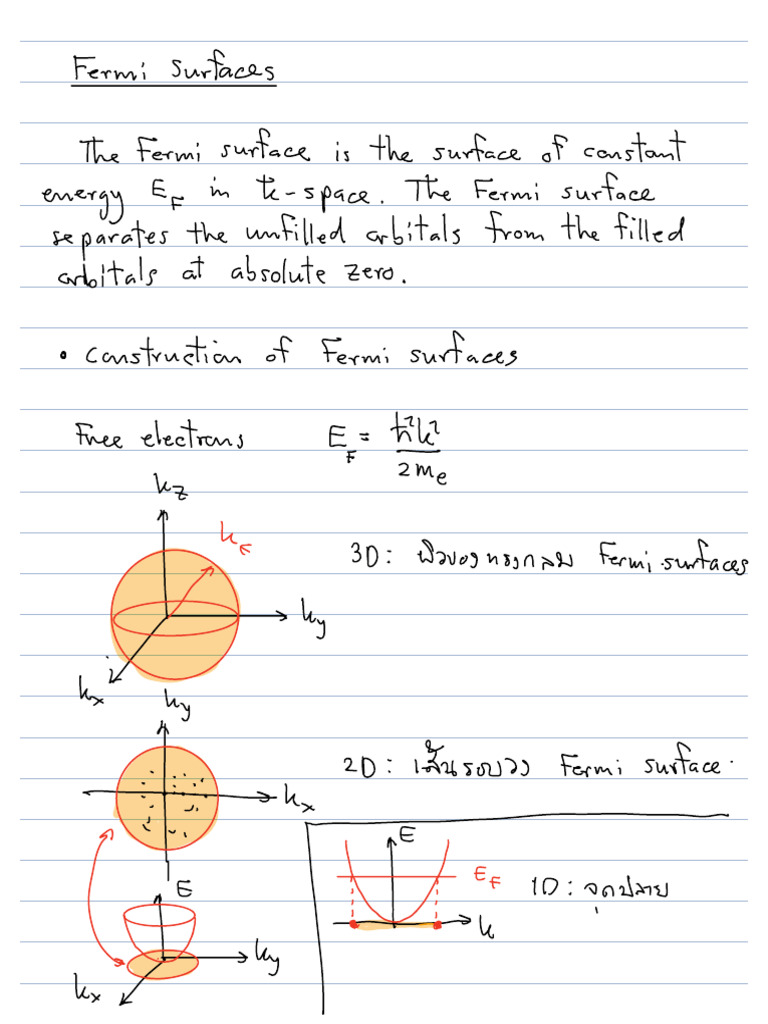 Fermi surfaces
The Fermi surface is the surface of constant
energy E_F in k-space. The Fermi surface
separates the unfilled orbitals from the filled
orbitals at absolute zero.
• Construction of Fermi surfaces
Free electrons E_F = ħ²k²/2m_e
k_z
k_F
3D: ผิวของทรงกลม Fermi surfaces
k_y
k_x
k_y
2D: เส้นรอบวง Fermi surface.
k_x
E
E_F
1D: จุดปลาย
k
E
k_y
k_x